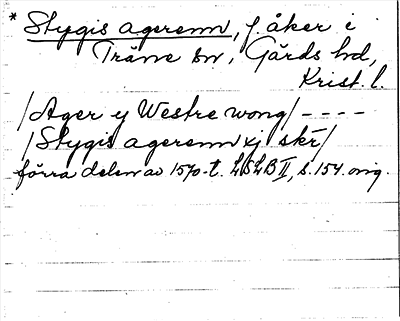 * Stygis agerenn, f. åker i
Träne sn, Gärds hd,
Krist. l.
/Ager ij Westre wong/ - - - -
/Stygis agerenn xj skr/
förra delen av 1570-t. LBLB II, s. 154. orig.